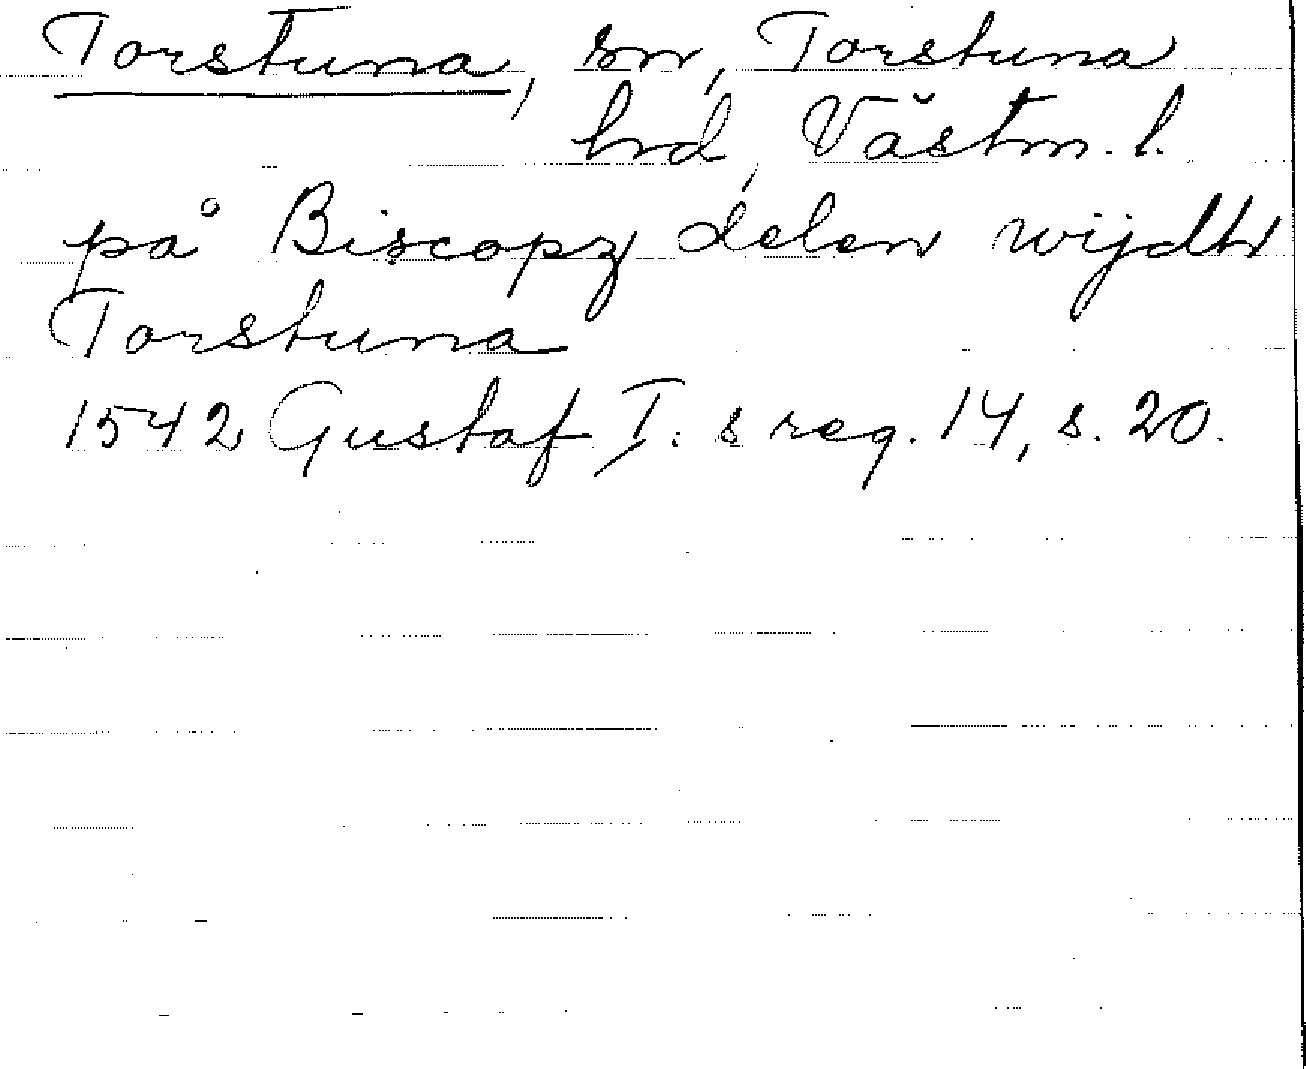 Torstuna, sn, Torstuna
hrd, Västm. l.
på Biscopz delen wijdh
Torstuna
1542 Gustaf I:s reg. 14, s. 20.